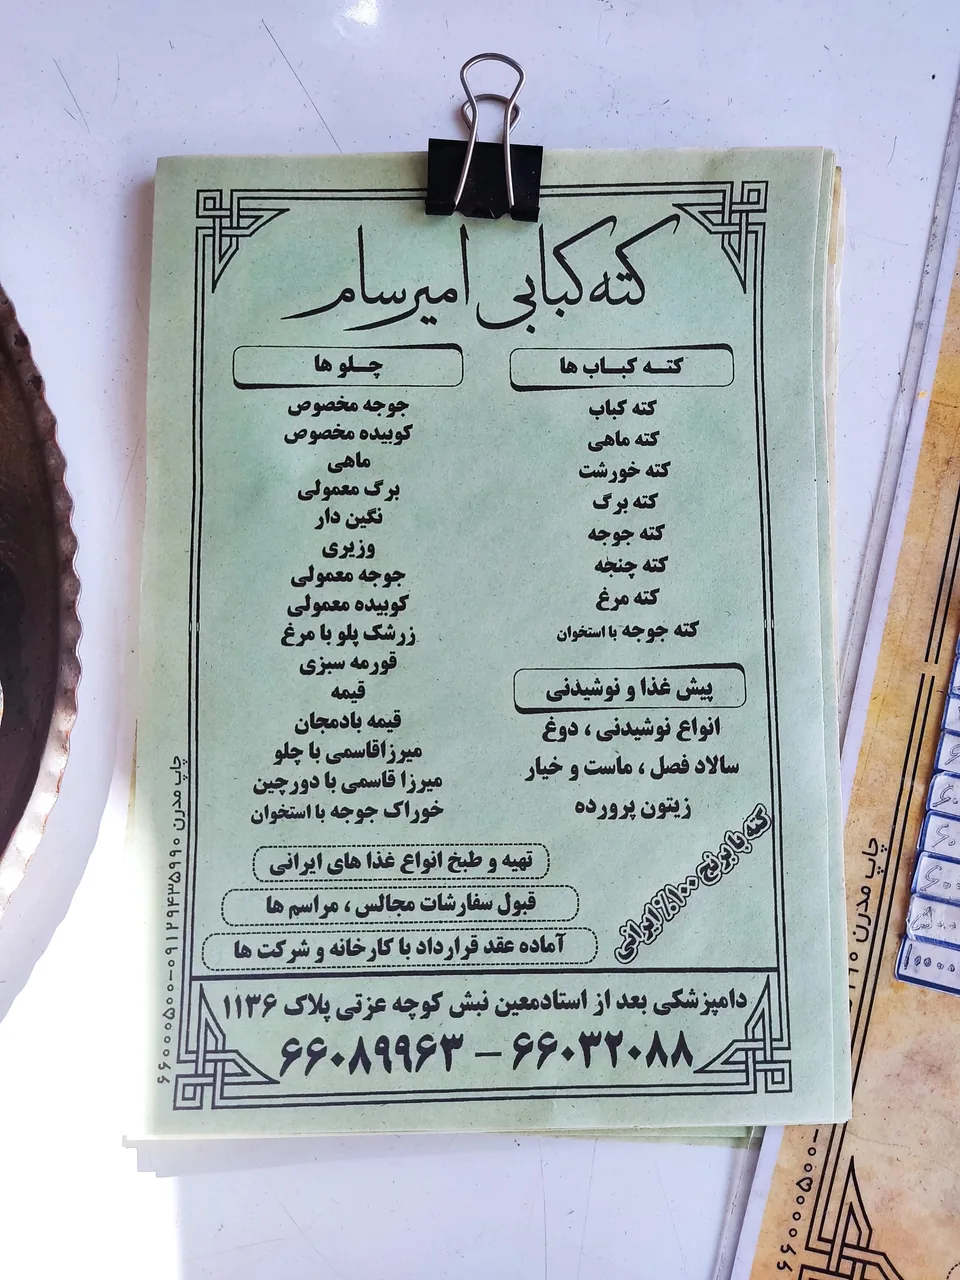 کته کبابی امیرسام
کته کباب ها
کته کباب
کته ماهی
کته خورشت
کته برگ
کته جوجه
کته چنجه
کته مرغ
کته جوجه با استخوان
پیش غذا و نوشیدنی
انواع نوشیدنی ، دوغ
سالاد فصل ، ماست و خیار
زیتون پرورده
کته با برنج ۱۰۰٪ ایرانی
چلو ها
جوجه مخصوص
کوبیده مخصوص
ماهی
برگ معمولی
نگین دار
وزیری
جوجه معمولی
کوبیده معمولی
زرشک پلو با مرغ
قورمه سبزی
قیمه
قیمه بادمجان
میرزاقاسمی با چلو
میرزا قاسمی با دورچین
خوراک جوجه با استخوان
تهیه و طبخ انواع غذا های ایرانی
قبول سفارشات مجالس ، مراسم ها
آماده عقد قرارداد با کارخانه و شرکت ها
دامپزشکی بعد از استادمعین نبش کوچه عزتی پلاک ۱۱۳۶
۶۶۰۸۹۹۶۳ - ۶۶۰۳۲۰۸۸
چاپ مدرن ۰۹۱۲۹۴۳۵۹۹۰-۶۶۰۰۰۵۰۰
چاپ مدرن